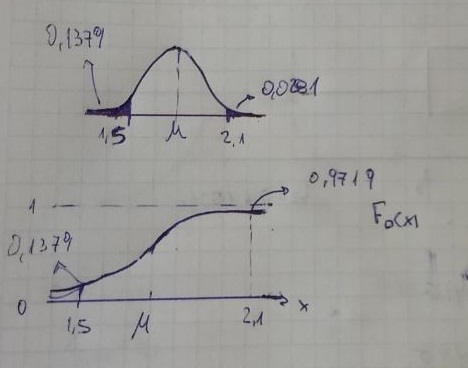 0,1379
0,0281
1,5 μ 2,1
0,9719
1
F₀(x)
0,1379
0 1,5 μ 2,1 x